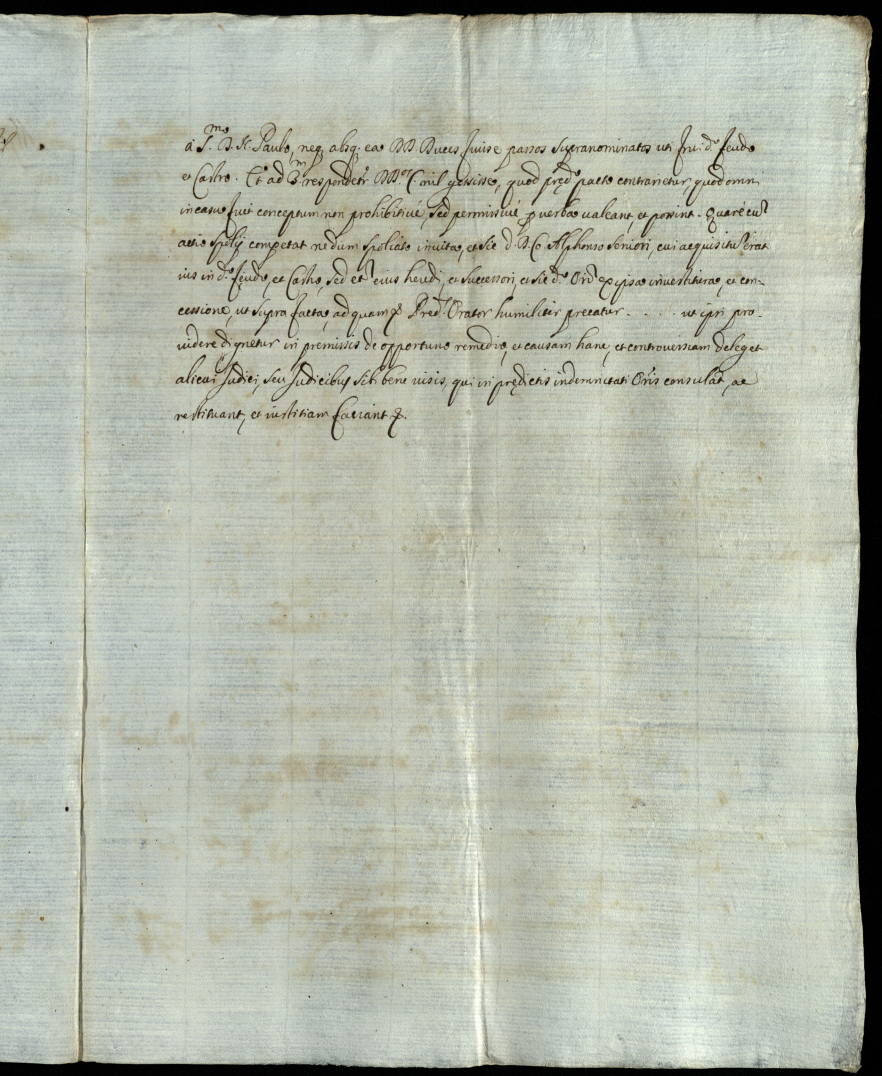 à S.mo D. N. Paulo, neq; absq; eo DD. Duces fuisse passos supranominatos uti frui d.o feudo
et Castro. Et ad 3.m respondetr DD.os C. nil gessisse, quod pręd.o pacto contrarietur, quod omni
in casu fuit conceptum non prohibitivé, sed permissivé p verba valeant et possint. Quaré cu
actio spolij competat nedum spoliato invito, et sic d. D. Co. Alphonso seniori, cui acquisitu erat
ius in d.o feudo, et Castro, sed et eius heredi, et successori, et sic d.o Orī ex ipsa investitura, et con-
cessione, ut supra facta, ad quam &. Pred.s Orator humiliter precatur . . . . . ut ipsi pro-
videre dignetur in premissis de opportuno remedio, et causam hanc, et controversiam deleget
alicui Judici, seu Judicibus sibi bene visis, qui in prędictis indemnitati Oris consulat, ac
restituant, et iustitiam faciant &.